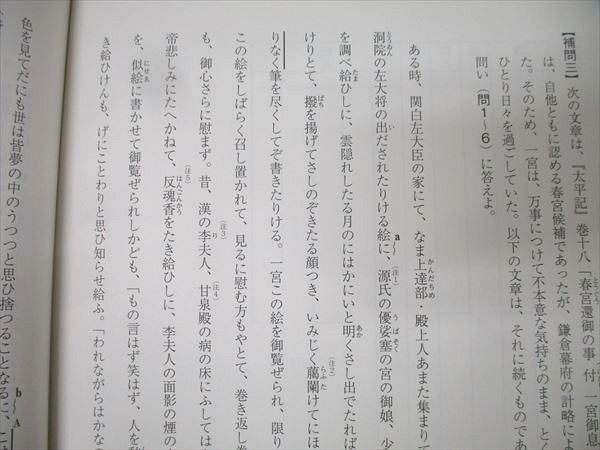 【補問三】 次の文章は、『太平記』巻十八「春宮還御の事 付 一宮御息
は、自他ともに認める春宮候補であったが、鎌倉幕府の計略によ
た。そのため、一宮は、万事につけて不本意な気持ちのまま、とく
ひとり日々を過ごしていた。以下の文章は、それに続くものであ
問い（問1～6）に答えよ。
ある時、関白左大臣の家にて、なま上達部、殿上人あまた集まりて
洞院の左大将の出だされたりける絵に、源氏の優婆塞の宮の御娘、少
を調べ給ひしに、雲隠れしたる月のにはかにいと明くさし出でたれば
けりとて、撥を揚げてさしのぞきたる顔つき、いみじく﨟闌けてにほ
りなく筆を尽くしてぞ書きたりける。一宮この絵を御覧ぜられ、限り
この絵をしばらく召し置かれて、見るに慰む方もやとて、巻き返し巻
も、御心さらに慰まず。昔、漢の李夫人、甘泉殿の病の床にふしては
帝悲しみにたへかねて、反魂香をたき給ひしに、李夫人の面影の煙の
を、似絵に書かせて御覧ぜられしかども、「もの言はず笑はず、人を
き給ひけんも、げにことわりと思ひ知らせ給ふ。「われながらはかな
色を見てだにも世は皆夢の中のうつつと思ひ捨つることなるに、こ